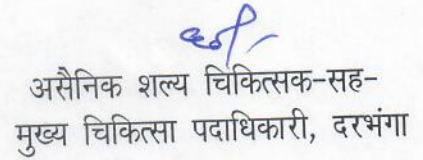 असैनिक शल्य चिकित्सक-सह-
मुख्य चिकित्सा पदाधिकारी, दरभंगा